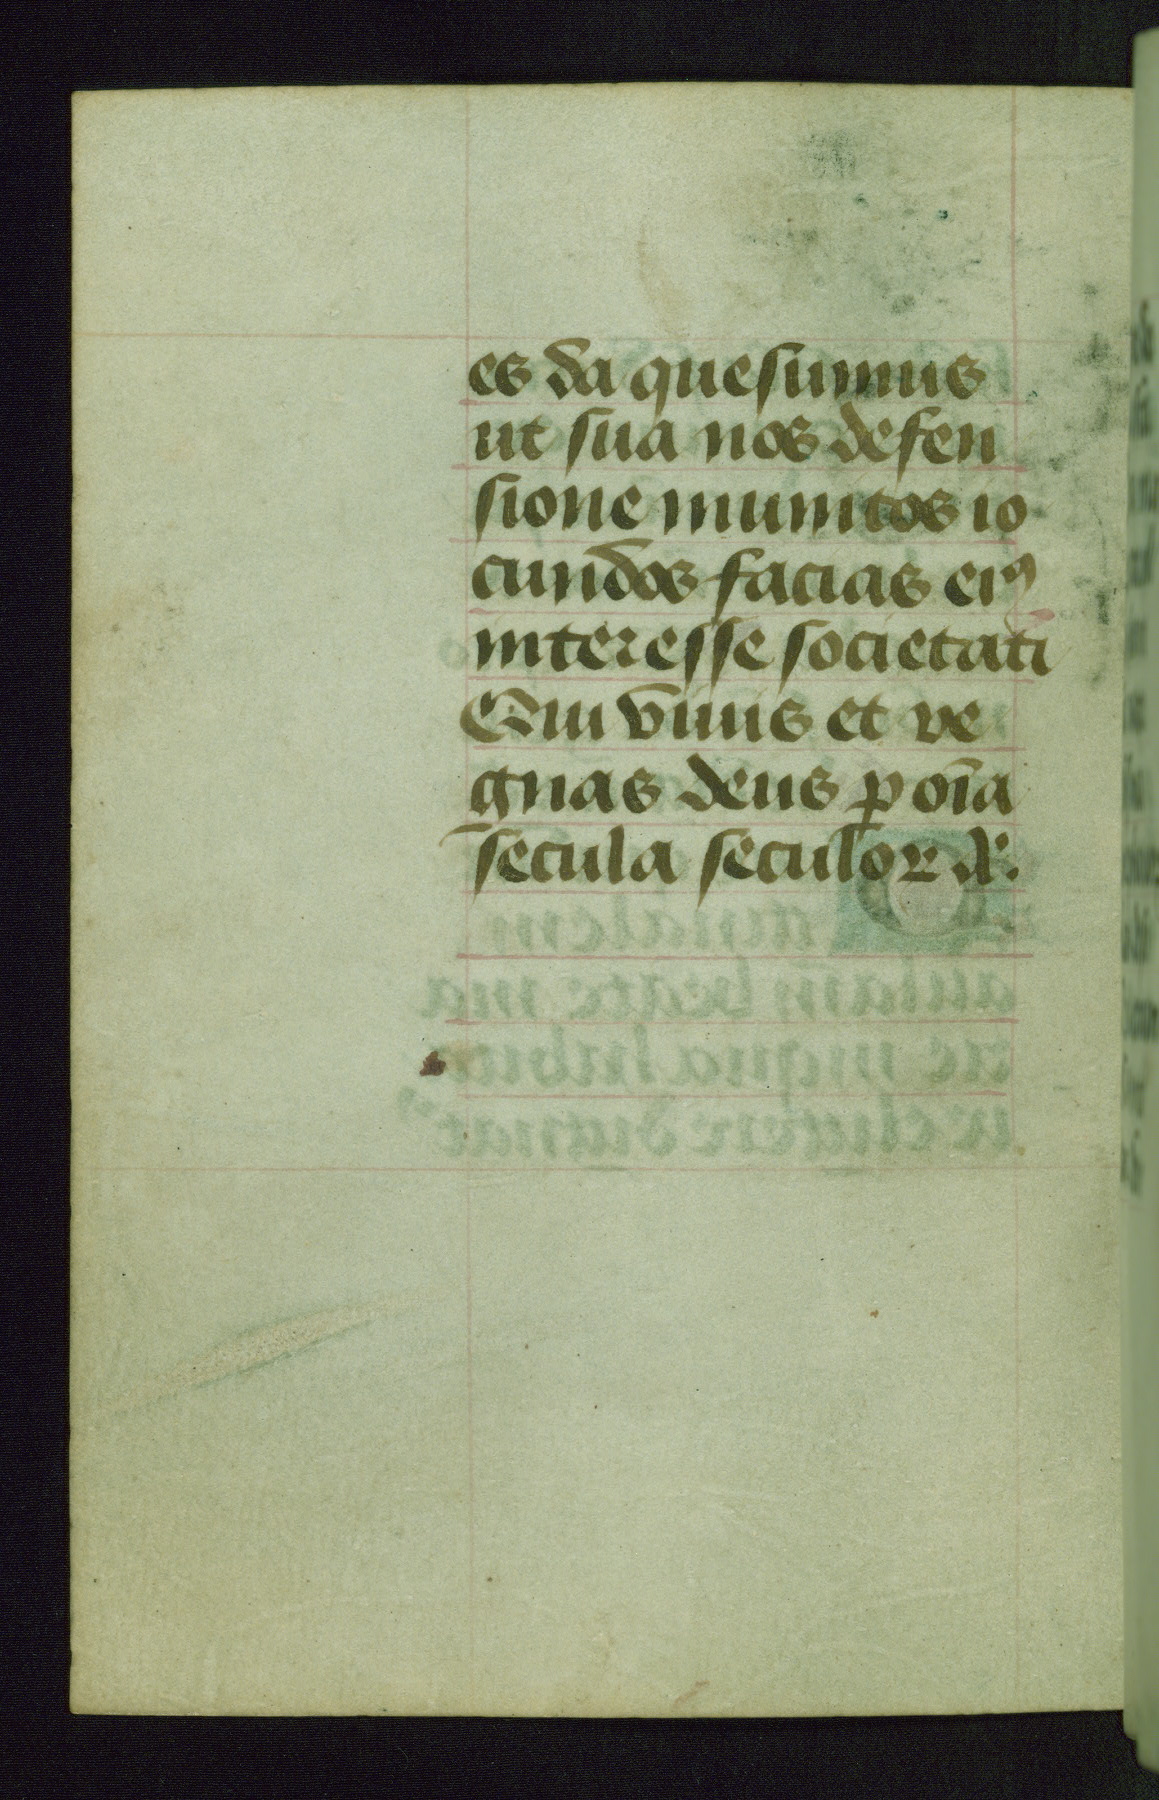 es da quesumus
ut sua nos defen
sione munitos io
cundos facias eiꝰ
interesse societati
Qui viuis et re
gnas deus ꝑ oīa
secula seculoꝝ